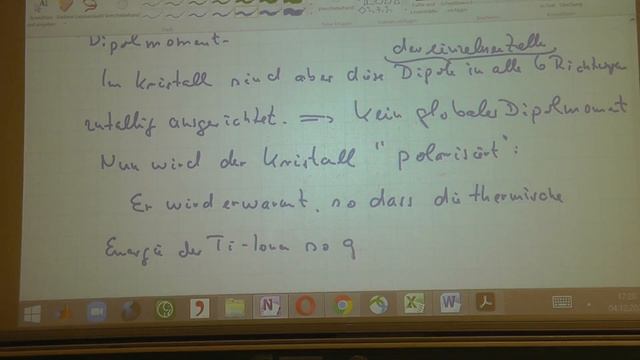 Dipolmoment.
der einzelnen Zelle
Im Kristall sind aber diese Dipole in alle 6 Richtungen
zufällig ausgerichtet. => Kein globales Dipolmoment
Nun wird der Kristall "polarisiert":
Er wird erwärmt, so dass die thermische
Energie der Ti-Ionen so g